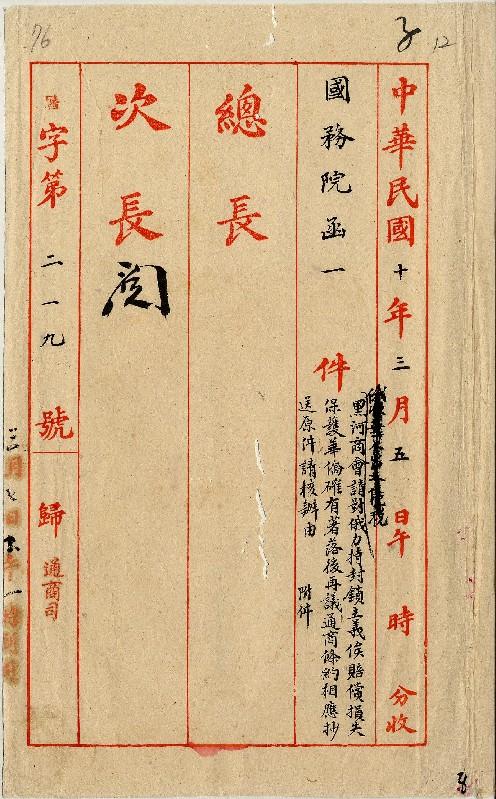 76
12
中華民國十年三月五日午 時 分收
國務院函一件
黑河商會請對俄力持封鎖主義俟賠償損失
保護華僑確有著落後再議通商條約相應抄
送原件請核辦由 附件
總長
次長 閱
字第二一九號 歸通商司